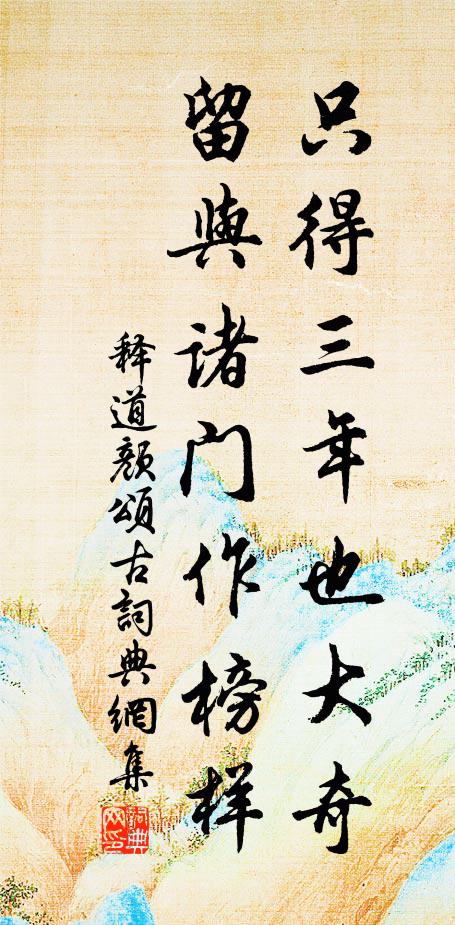 只得三年也大奇
留與诸门作榜样
释道颜頌古詞典網集
詞典
网印